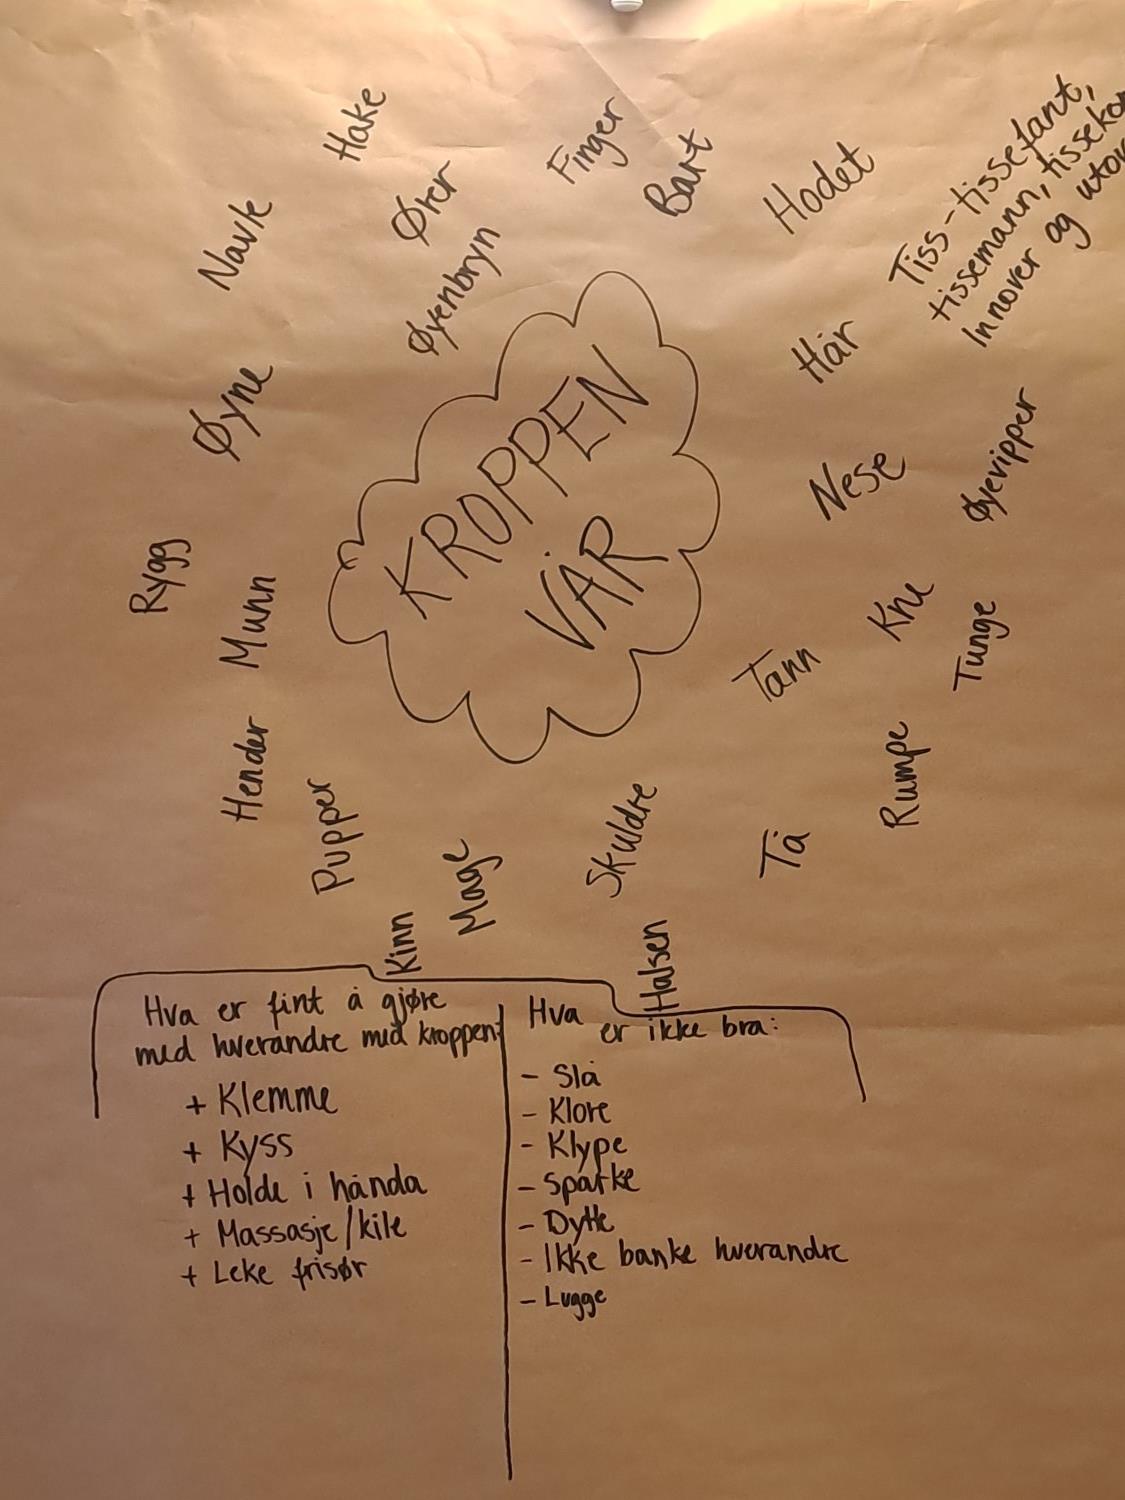 Hake
Finger
Bart
Ører
Navle
Øyenbryn
Hodet
Tiss-tissefant,
tissemann,
Innover og
Hår
Øyne
KROPPEN
VÅR
Nese
Øyevipper
Rygg
Munn
Kne
Tunge
Tann
Hender
Pupper
Mage
Skuldre
Tå
Rumpe
Kinn
Halsen
Hva er fint å gjøre
med hverandre med kroppen:
+ Klemme
+ Kyss
+ Holde i hånda
+ Massasje/kile
+ Leke frisør
Hva
er ikke bra:
- Slå
- Klore
- Klype
- Sparke
- Dytte
- Ikke banke hverandre
- Lugge